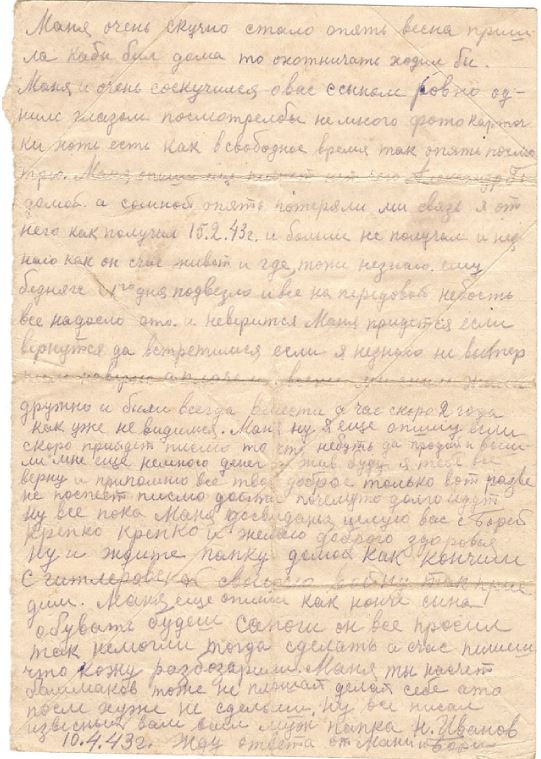 Маня очень скучно стало опять весна приш-
ла кабы был дома то охотничать ходил бы.
Маня и очень соскучился о вас с сыном ровно од-
ним глазом посмотрелбы не много фото карточ-
ки хоть есть как в свободное время так опять посмо
трю. Маня опиши еще
домой. а сомной опять потеряли ми связь я от
него как получил 15.2.43г. и больши не получал и нез
наю как он счас живет и где, тожи незнаю. ему
бедняге подвезло и все на передовой
все надоело ато. и неверится Маня придется если
вернутся да встретимся если я незнаю не вытер

дружно и были всегда вмести а час скоро 2 года
как уже не видимся. Маня ну я еще опишу если
скоро прийдет письмо то что небуть да продай и вышли
ми мне еще немного денег жив буду я тебе все
верну и припомню все твое доброе только вот разве
не поспеет письмо почемуто долго идут
ну все пока Маня досвидания целую вас с Борей
крепко крепко и желаю доброго здоровья
Ну и ждите папку домой как кончим
с гитлеровской войну так прие
дим. Маня еще опиши как сына
обувать будеш сапоги он все просил
так немогли тогда сделать а счас пишиш
что кожу разбазарили. Маня ты насчет
башмаков тоже не делай себе ато
посли хуже не сделали. Ну все писал
известный вам ваш муж папка Н. Иванов
10.4.43г. Жду ответа от Мани и Бори